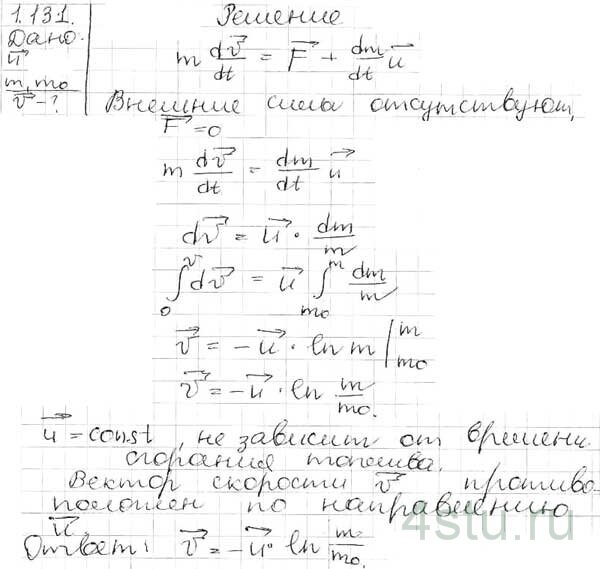 1.131.
Дано:
u⃗
m, m₀
v⃗ - ?
Решение
m dv⃗/dt = F⃗ + dm/dt u⃗
Внешние силы отсутствуют,
F⃗ = 0
m dv⃗/dt = dm/dt u⃗
dv⃗ = u⃗ · dm/m
∫₀ᵛ dv⃗ = u⃗ ∫ₘ₀ᵐ dm/m
v⃗ = -u⃗ · ln m |ₘ₀ᵐ
v⃗ = -u⃗ · ln m/m₀.
u⃗ = const, не зависит от времени
сгорания топлива.
Вектор скорости v⃗ противо
положен по направлению
u⃗.
4stu.ru
Ответ: v⃗ = -u⃗ · ln m/m₀.